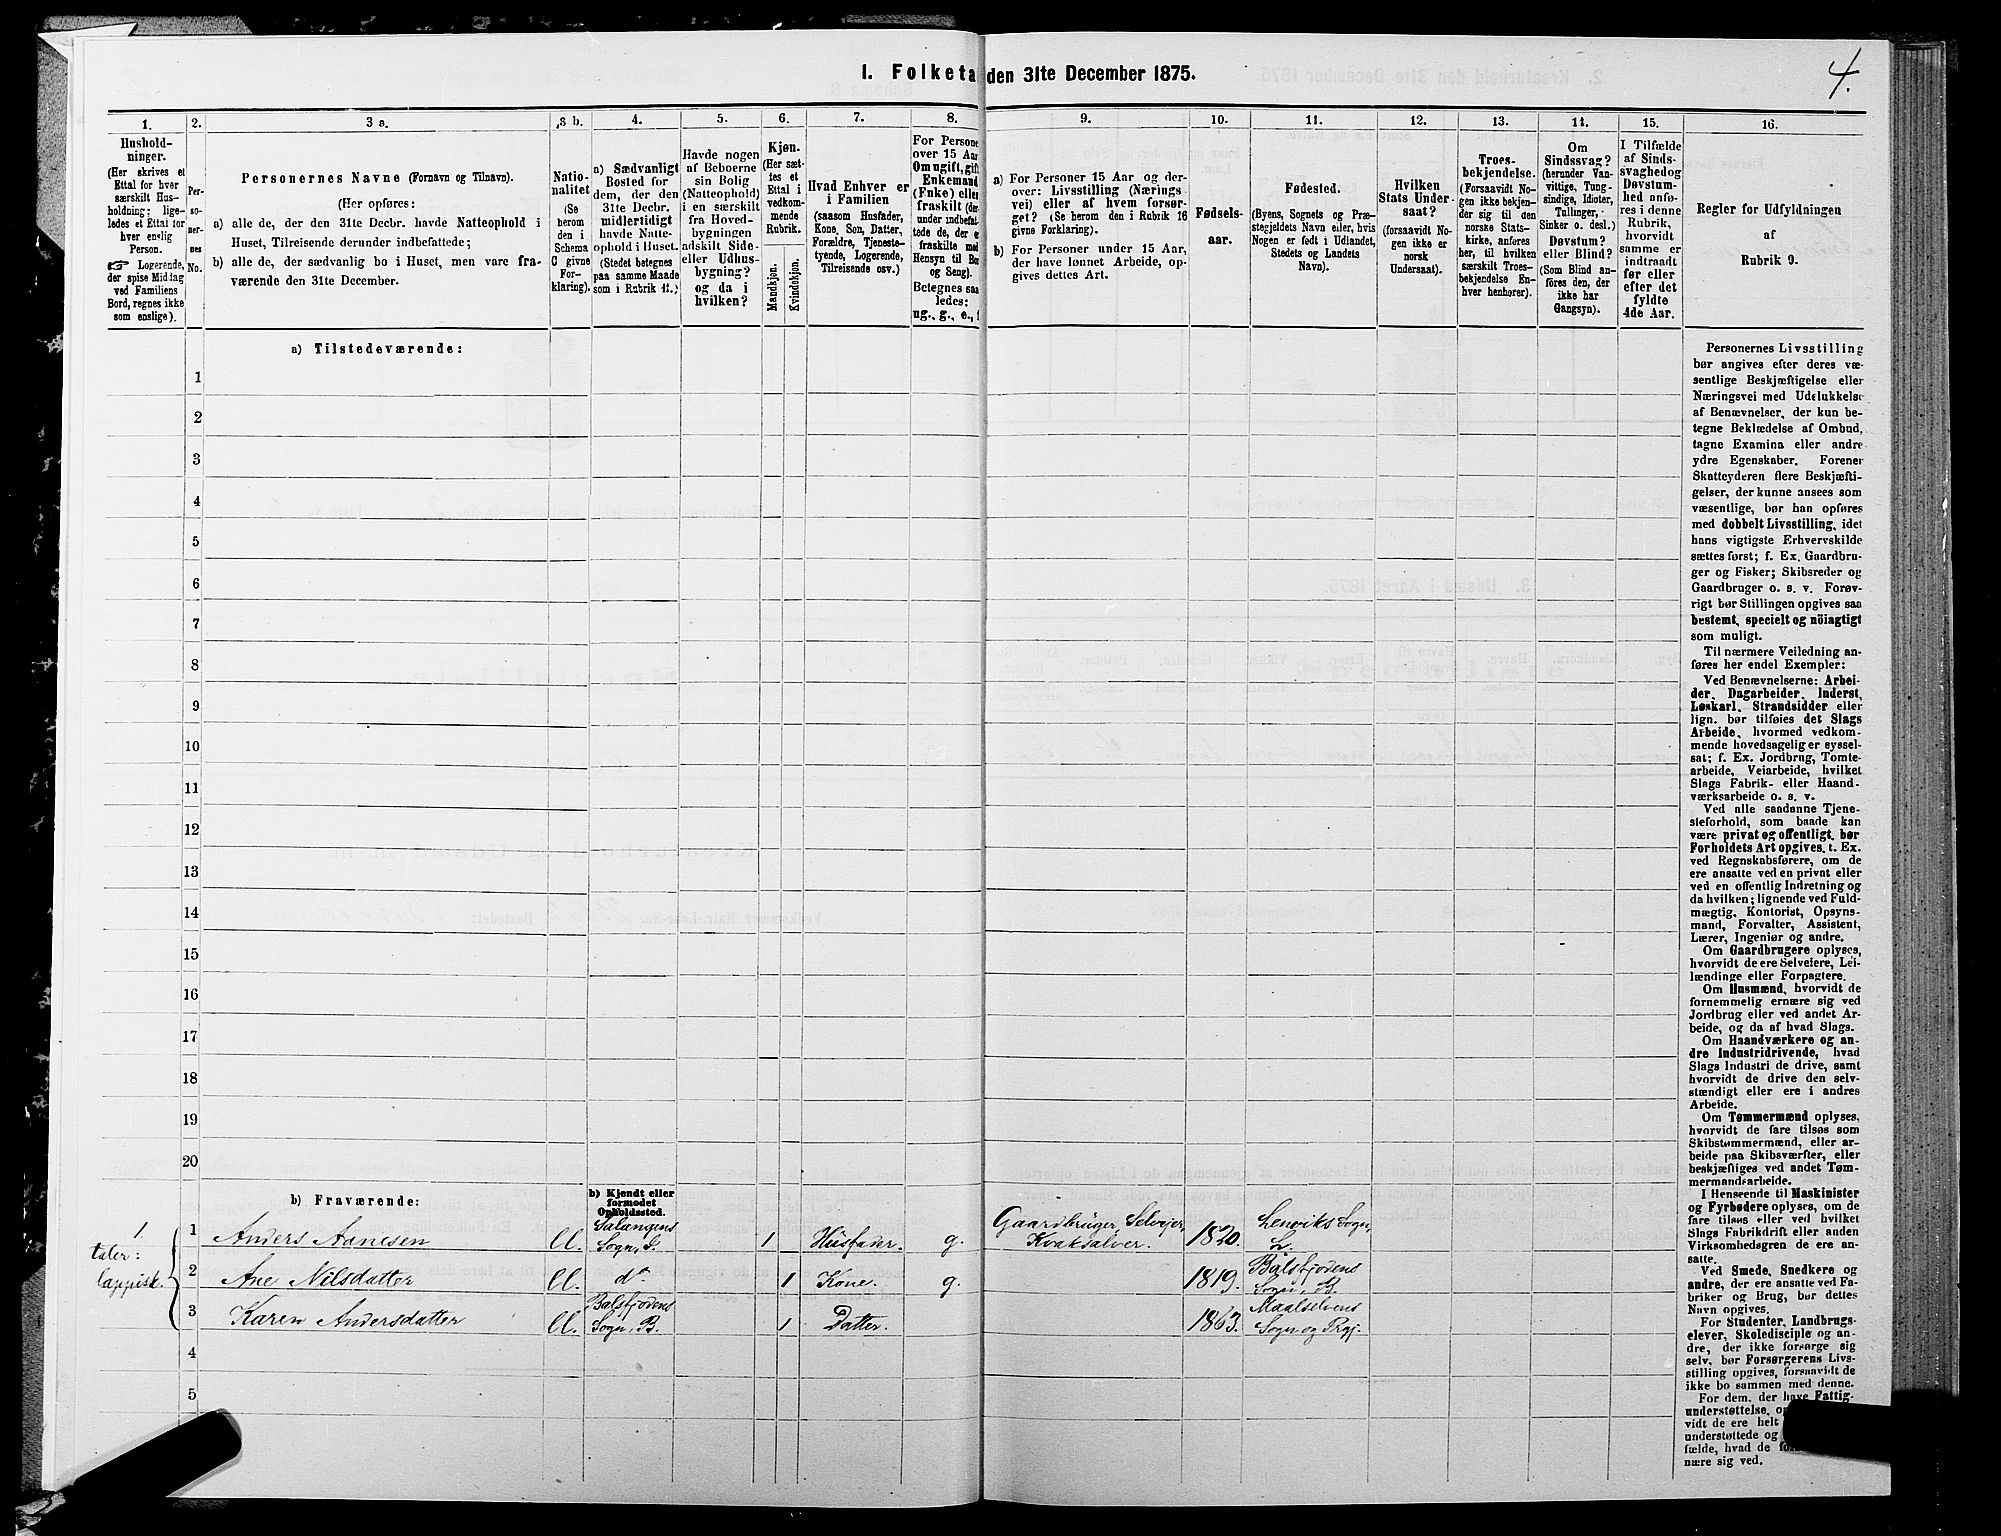 4.
I. Folketa den 31te December 1875.
1. 2. 3 a. 3 b. 4. 5. 6. 7. 8. 9. 10. 11. 12. 13. 14. 15. 16.
Hushold-
ninger.
(Her skrives et
Ettal for hver
særskilt Hus-
holdning; lige-
ledes et Ettal for
hver enslig
Person.
☞ Logerende,
der spise Middag
ved Familiens
Bord, regnes ikke
som enslige).
Per-
so-
ner-
nes
No.
Personernes Navne (Fornavn og Tilnavn).
(Her opføres:
a) alle de, der den 31te Decbr. havde Natteophold i
Huset, Tilreisende derunder indbefattede;
b) alle de, der sædvanlig bo i Huset, men vare fra-
værende den 31te December.
Natio-
nalitet
(Se
herom
den i
Schema
C givne
For-
klaring).
a) Sædvanligt
Bosted for
dem, der den
31te Decbr.
midlertidigt
havde Natte-
ophold i Huset.
(Stedet betegnes
paa samme Maade
som i Rubrik 11.)
Havde nogen
af Beboerne
sin Bolig
(Natteophold)
i en særskilt
fra Hoved-
bygningen
adskilt Side-
eller Udhus-
bygning?
og da i
hvilken?
Kjøn.
(Her sæt-
tes et
Ettal i
vedkom-
mende
Rubrik.
Mandkjøn.
Kvindekjøn.
Hvad Enhver er
i Familien
(saasom Husfader,
Kone, Søn, Datter,
Forældre, Tjeneste-
tyende, Logerende,
Tilreisende osv.)
For Persone
over 15 Aar
Om ugift, gift
Enkemand
(Enke) elle
fraskilt (der
under indbefat-
tede de, der e
fraskilte med
Hensyn til Bo
og Seng).
Betegnes saa
ledes:
ug., g., e., f
a) For Personer 15 Aar og der-
over: Livsstilling (Nærings-
vei) eller af hvem forsør-
get? (Se herom den i Rubrik 16
givne Forklaring).
b) For Personer under 15 Aar,
der have lønnet Arbeide, op-
gives dettes Art.
Fødsels-
aar.
Fødested.
(Byens, Sognets og Præ-
stegjeldets Navn eller, hvis
Nogen er født i Udlandet,
Stedets og Landets
Navn).
Hvilken
Stats Under-
saat?
(forsaavidt No-
gen ikke er
norsk
Undersaat).
Troes-
bekjendelse.
(Forsaavidt No-
gen ikke bekjen-
der sig til den
norske Stats-
kirke, anføres
her, til hvilken
særskilt Troes-
bekjendelse En-
hver henhører).
Om
Sindssvag?
(herunder Van-
vittige, Tung-
sindige, Idioter,
Tullinger,
Sinker o. desl.)
Døvstum?
eller Blind?
(Som Blind an-
føres den, der
ikke har
Gangsyn).
I Tilfælde
af Sinds-
svaghed og
Døvstum-
hed anfø-
res i denne
Rubrik,
hvorvidt
samme er
indtraadt
før eller
efter det
fyldte
4de Aar.
Regler for Udfyldningen
af
Rubrik 9.
a) Tilstedeværende:
1
2
3
4
5
6
7
8
9
10
11
12
13
14
15
16
17
18
19
20
b) Fraværende:
b) Kjendt eller
formodet
Opholdssted.
1. 1 Anders Aanesen ll. Salangens Sogn, S. 1 Husfader. g. Gaardbruger, Selvejer, Kvaksalver. 1820. Lenviks Sogn, L.
taler: lappisk. 2 Ane Nilsdatter ll. do 1 Kone. g. 1819. Balsfjordens Sogn, B.
3 Karen Andersdatter ll. Balsfjordens Sogn, B. 1 Datter. 1863. Maalselvens Sogn og Prgj.
4
5
Personernes Livsstilling
bør angives efter deres væ-
sentlige Beskjæftigelse eller
Næringsvei med Udelukkelse
af Benævnelser, der kun be-
tegne Beklædelse af Ombud,
tagne Examina eller andre
ydre Egenskaber. Forener
Skatteyderen flere Beskjæfti-
gelser, der kunne ansees som
væsentlige, bør han opføres
med dobbelt Livsstilling, idet
hans vigtigste Erhvervskilde
sættes først; f. Ex. Gaardbru-
ger og Fisker; Skibsreder og
Gaardbruger o. s. v. Forøv-
rigt bør Stillingen opgives saa
bestemt, specielt og nøiagtigt
som muligt.
Til nærmere Veiledning an-
føres her endel Exempler:
Ved Benævnelserne: Arbei-
der, Dagarbeider, Inderst,
Løskarl, Strandsidder eller
lign. bør tilføies det Slags
Arbeide, hvormed vedkom-
mende hovedsagelig er syssel-
sat; f. Ex. Jordbrug, Tomte-
arbeide, Veiarbeide, hvilket
Slags Fabrik- eller Haand-
værksarbeide o. s. v.
Ved alle saadanne Tjene-
steforhold, som baade kan
være privat og offentligt, bør
Forholdets Art opgives, t. Ex.
ved Regnskabsførere, om de
ere ansatte ved en privat eller
ved en offentlig Indretning og
da hvilken; lignende ved Fuld-
mægtig, Kontorist, Opsyns-
mand, Forvalter, Assistent,
Lærer, Ingeniør og andre.
Om Gaardbrugere oplyses,
hvorvidt de ere Selveiere, Lei-
lændinge eller Forpagtere.
Om Husmænd, hvorvidt de
fornemmelig ernære sig ved
Jordbrug eller ved andet Ar-
beide, og da af hvad Slags.
Om Haandværkere og an-
dre Industridrivende, hvad
Slags Industri de drive, samt
hvorvidt de drive den selv-
stændigt eller ere i andres
Arbeide.
Om Tømmermænd oplyses,
hvorvidt de fare tilsøs som
Skibstømmermænd, eller ar-
beide paa Skibsværfter, eller
beskjæftiges ved andet Tøm-
mermandsarbeide.
I Henseende til Maskinister
og Fyrbødere oplyses, om de
fare tilsøs eller ved hvilket
Slags Fabrikdrift eller anden
Virksomhedsgren de ere an-
satte.
Ved Smede, Snedkere og
andre, der ere ansatte ved Fa-
briker og Brug, bør dettes
Navn opgives.
For Studenter, Landbrugs-
elever, Skoledisciple og an-
dre, der ikke forsørge sig
selv, bør Forsørgerens Livs-
stilling opgives, forsaavidt de
ikke bo sammen med denne.
For dem, der have Fattig-
understøttelse, o
vidt de ere helt
understøttede og
fælde, hvad de
nære sig ved.